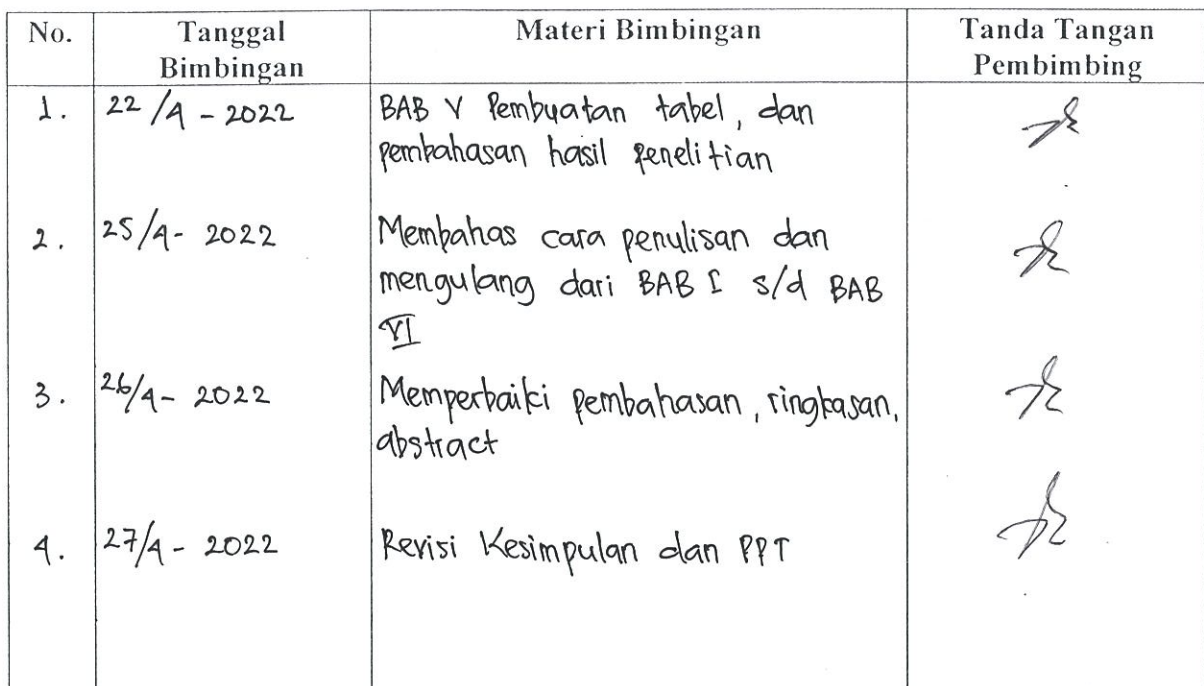 No. Tanggal Bimbingan Materi Bimbingan Tanda Tangan Pembimbing
1. 22/4 - 2022 BAB V Pembuatan tabel, dan
pembahasan hasil penelitian
2. 25/4 - 2022 Membahas cara penulisan dan
mengulang dari BAB I s/d BAB
VI
3. 26/4 - 2022 Memperbaiki pembahasan, ringkasan,
abstract
4. 27/4 - 2022 Revisi Kesimpulan dan PPT